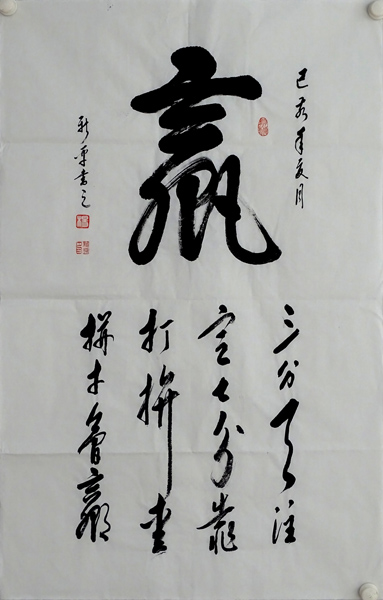 己亥年夏月
赢
书之
三分天注
定七分靠
打拼爱
拼才會赢